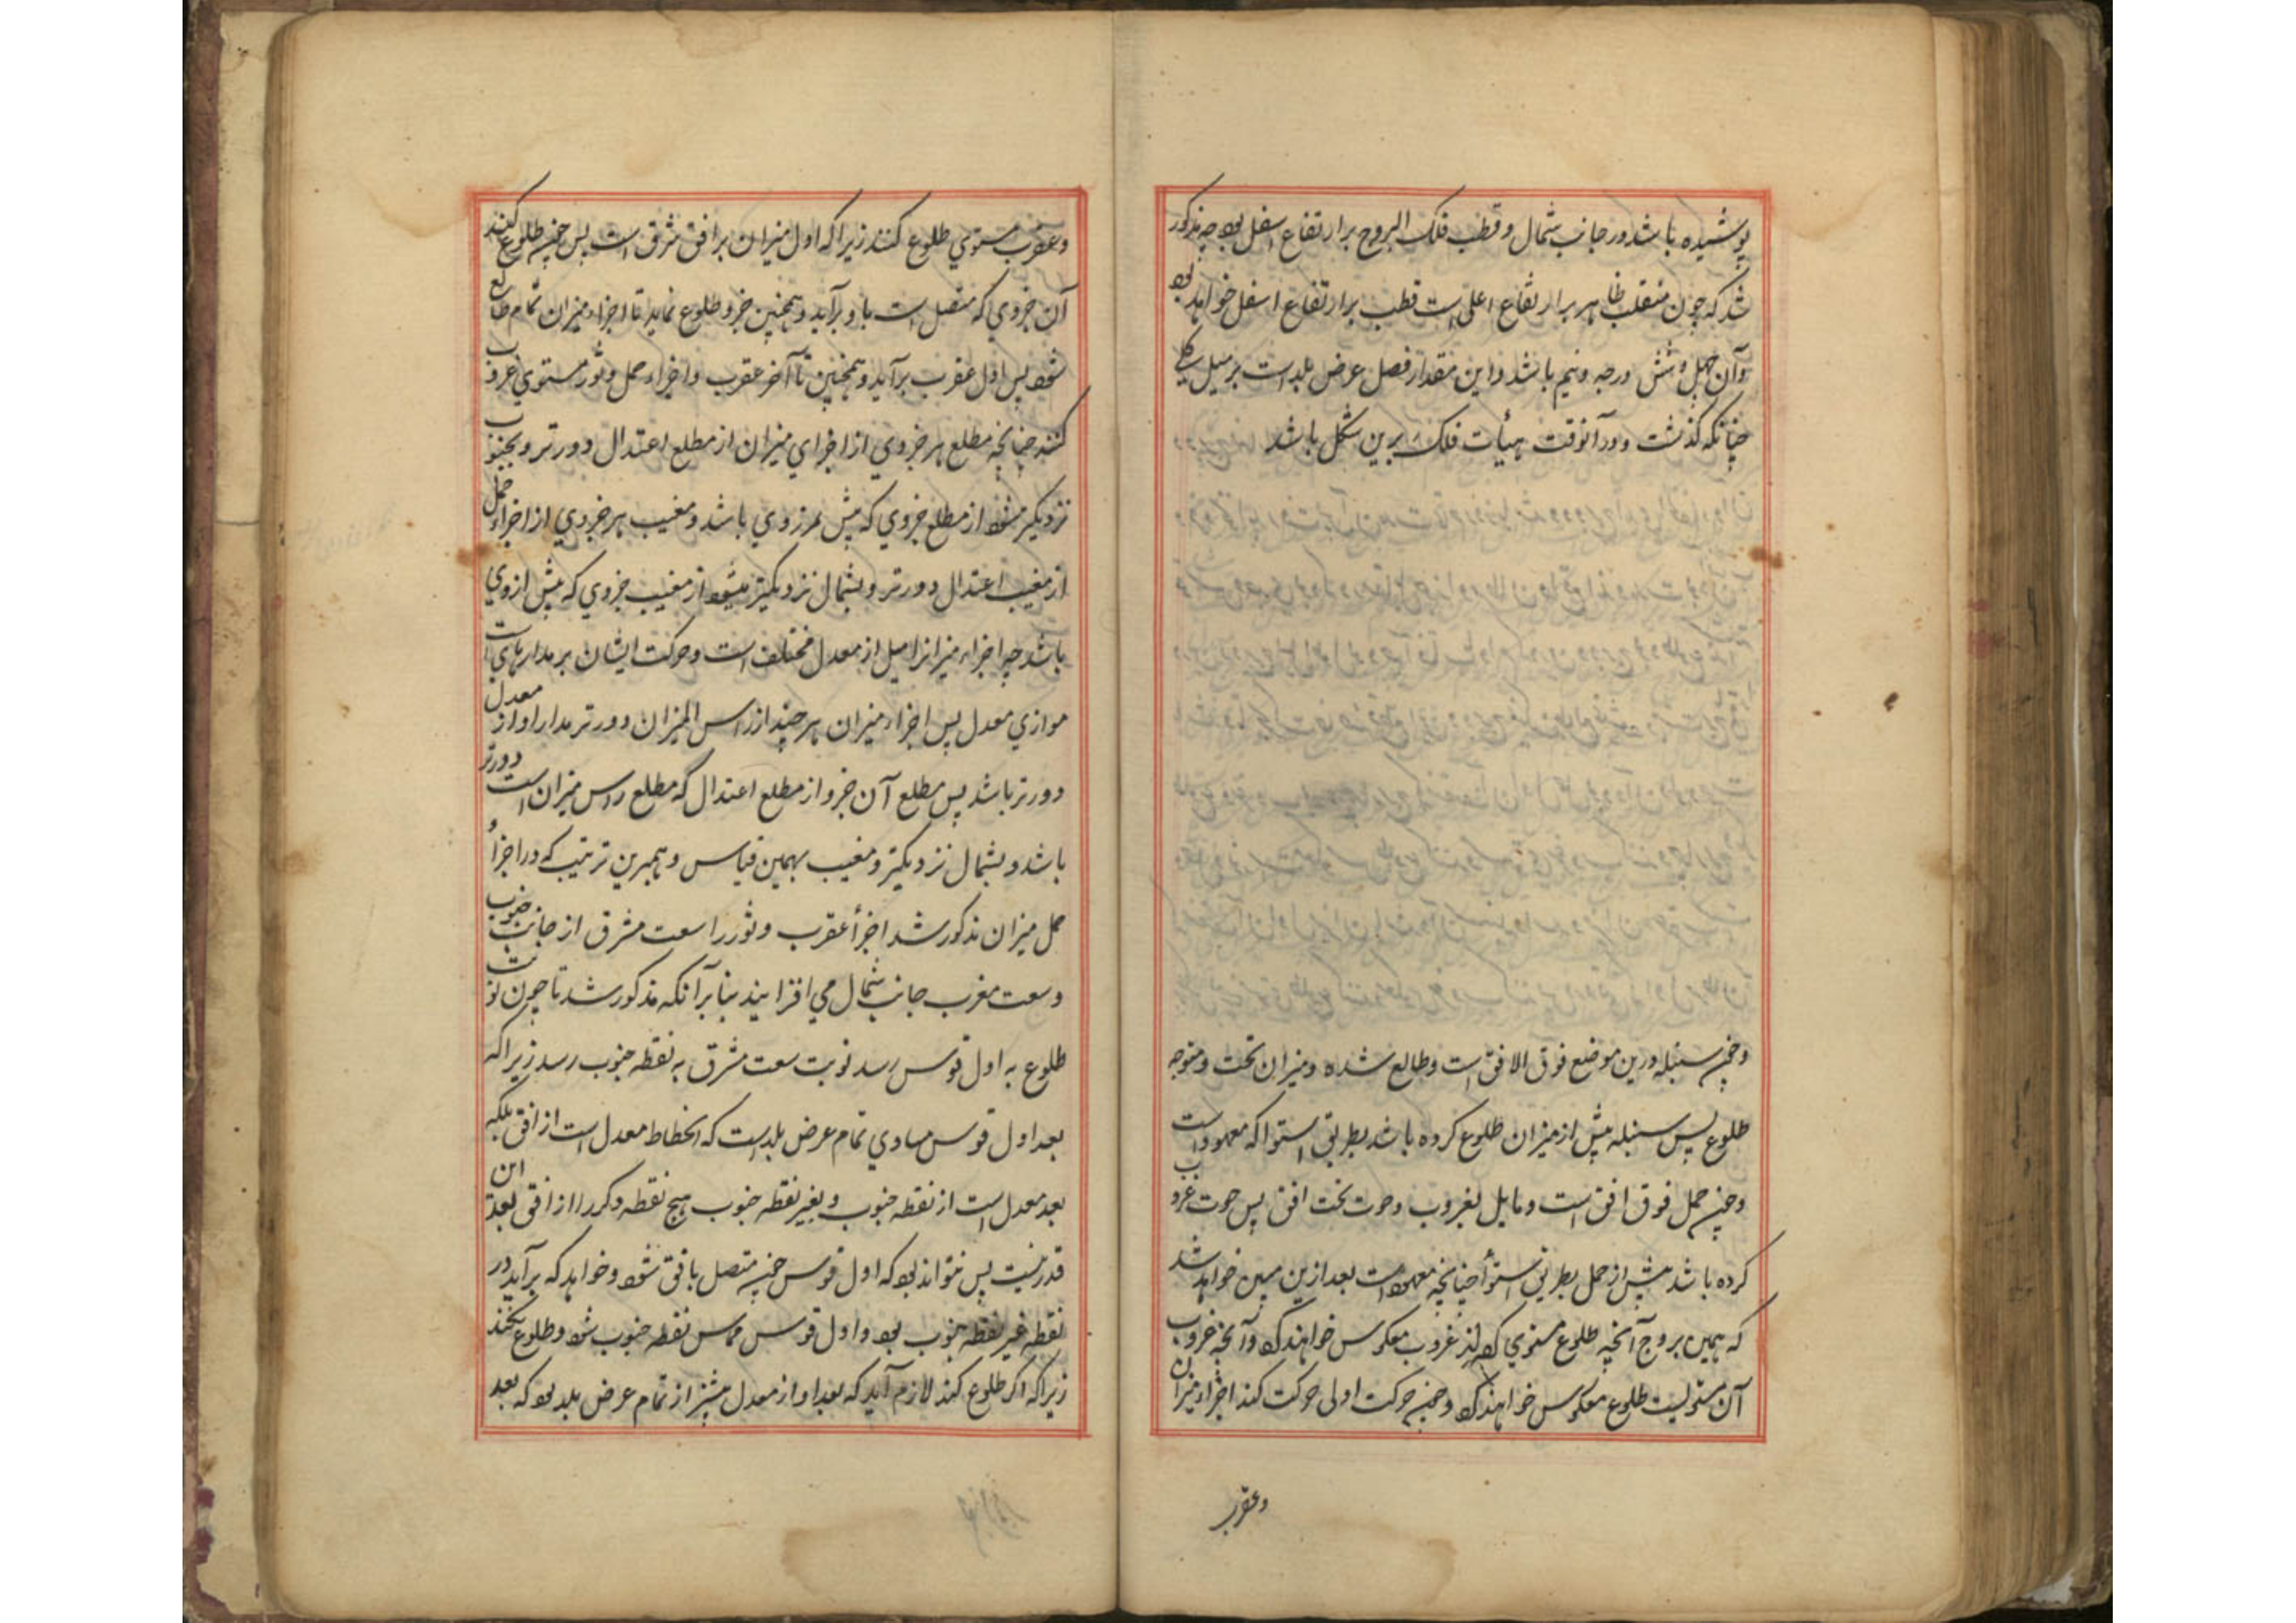 پوشیده باشد در جانب شمال و قطب فلک البروج بر ارتفاع اسفل بود چه مذکور
شد که چون منقلب ظاهر بر ارتفاع اعلی است قطب بر ارتفاع اسفل خواهد بود
و آن چهل و شش درجه و نیم باشد و این مقدار فصل عرض بلد است بر میل کلی
چنانکه گذشت و در آنوقت هیأت فلک برین شکل باشد
و چون سنبله درین موضع فوق الافق است و طالع شده و میزان تحت و متوجه
طلوع پس سنبله پیش از میزان طلوع کرده باشد بطریق استوا که معهود است
و چون حمل فوق افق است و مایل بغروب و حوت تحت افق پس حوت غروب
کرده باشد پیش از حمل بطریق استوأ چنانچه معهود است بعد ازین مبین خواهد شد
که همین بروج آنچه طلوع مستوی کرد غروب معکوس خواهند کرد و آنچه غروب
آن مستویست طلوع معکوس خواهند کرد و چون حرکت اولی حرکت کند اجزاء میزان
و عقرب
و عقرب مستوی طلوع کنند زیرا که اول میزان بر افق مشرق است پس چون طلوع کند
آن جزوی که متصل است باو برآید و همچنین جزو جزو طلوع نماید تا اجزاء میزان تمام طالع
شود پس اول عقرب برآید و همچنین تا آخر عقرب و اجزاء حمل و ثور مستوی غروب
کنند چنانچه مطلع هر جزوی از اجزای میزان از مطلع اعتدال دورتر و بجنوب
نزدیکتر میشود از مطلع جزوی که پیش از وی باشد و مغیب هر جزوی از اجزاء حمل
از مغیب اعتدال دورتر و بشمال نزدیکتر میشود از مغیب جزوی که پیش از وی
باشد چه اجزاء میزانرا میل از معدل مختلف است و حرکت ایشان بر مدارهای است
موازی معدل پس اجزاء میزان هر چند از راس المیزان دورتر مدار او از معدل
دورتر باشد پس مطلع آن جزو از مطلع اعتدال که مطلع راس میزان است دورتر
باشد و بشمال نزدیکتر و مغیب بهمین قیاس و همبرین ترتیب که در اجزأ و
حمل میزان مذکور شد اجزأ عقرب و ثور را سعت مشرق از جانب جنوب
و سعت مغرب جانب شمال می افزایند بنابر آنکه مذکور شد تا چون نوبت
طلوع به اول قوس رسد نوبت سعت مشرق به نقطه جنوب رسد زیرا که
بعد اول قوس مساوی تمام عرض بلد است که انحطاط معدل است از افق بلکه
بعد معدل است از نقطه جنوب و بغیر نقطه جنوب هیچ نقطه دیگر را از افق بعد این
قدر نیست پس نتواند بود که اول قوس چون متصل بافق شود و خواهد که برآید در
نقطه غیر نقطه جنوب بود و اول قوس مماس نقطه جنوب شود و طلوع نکند
زیرا که اگر طلوع کند لازم آید که بعد او از معدل بیشتر از تمام عرض بلد بود که بعد